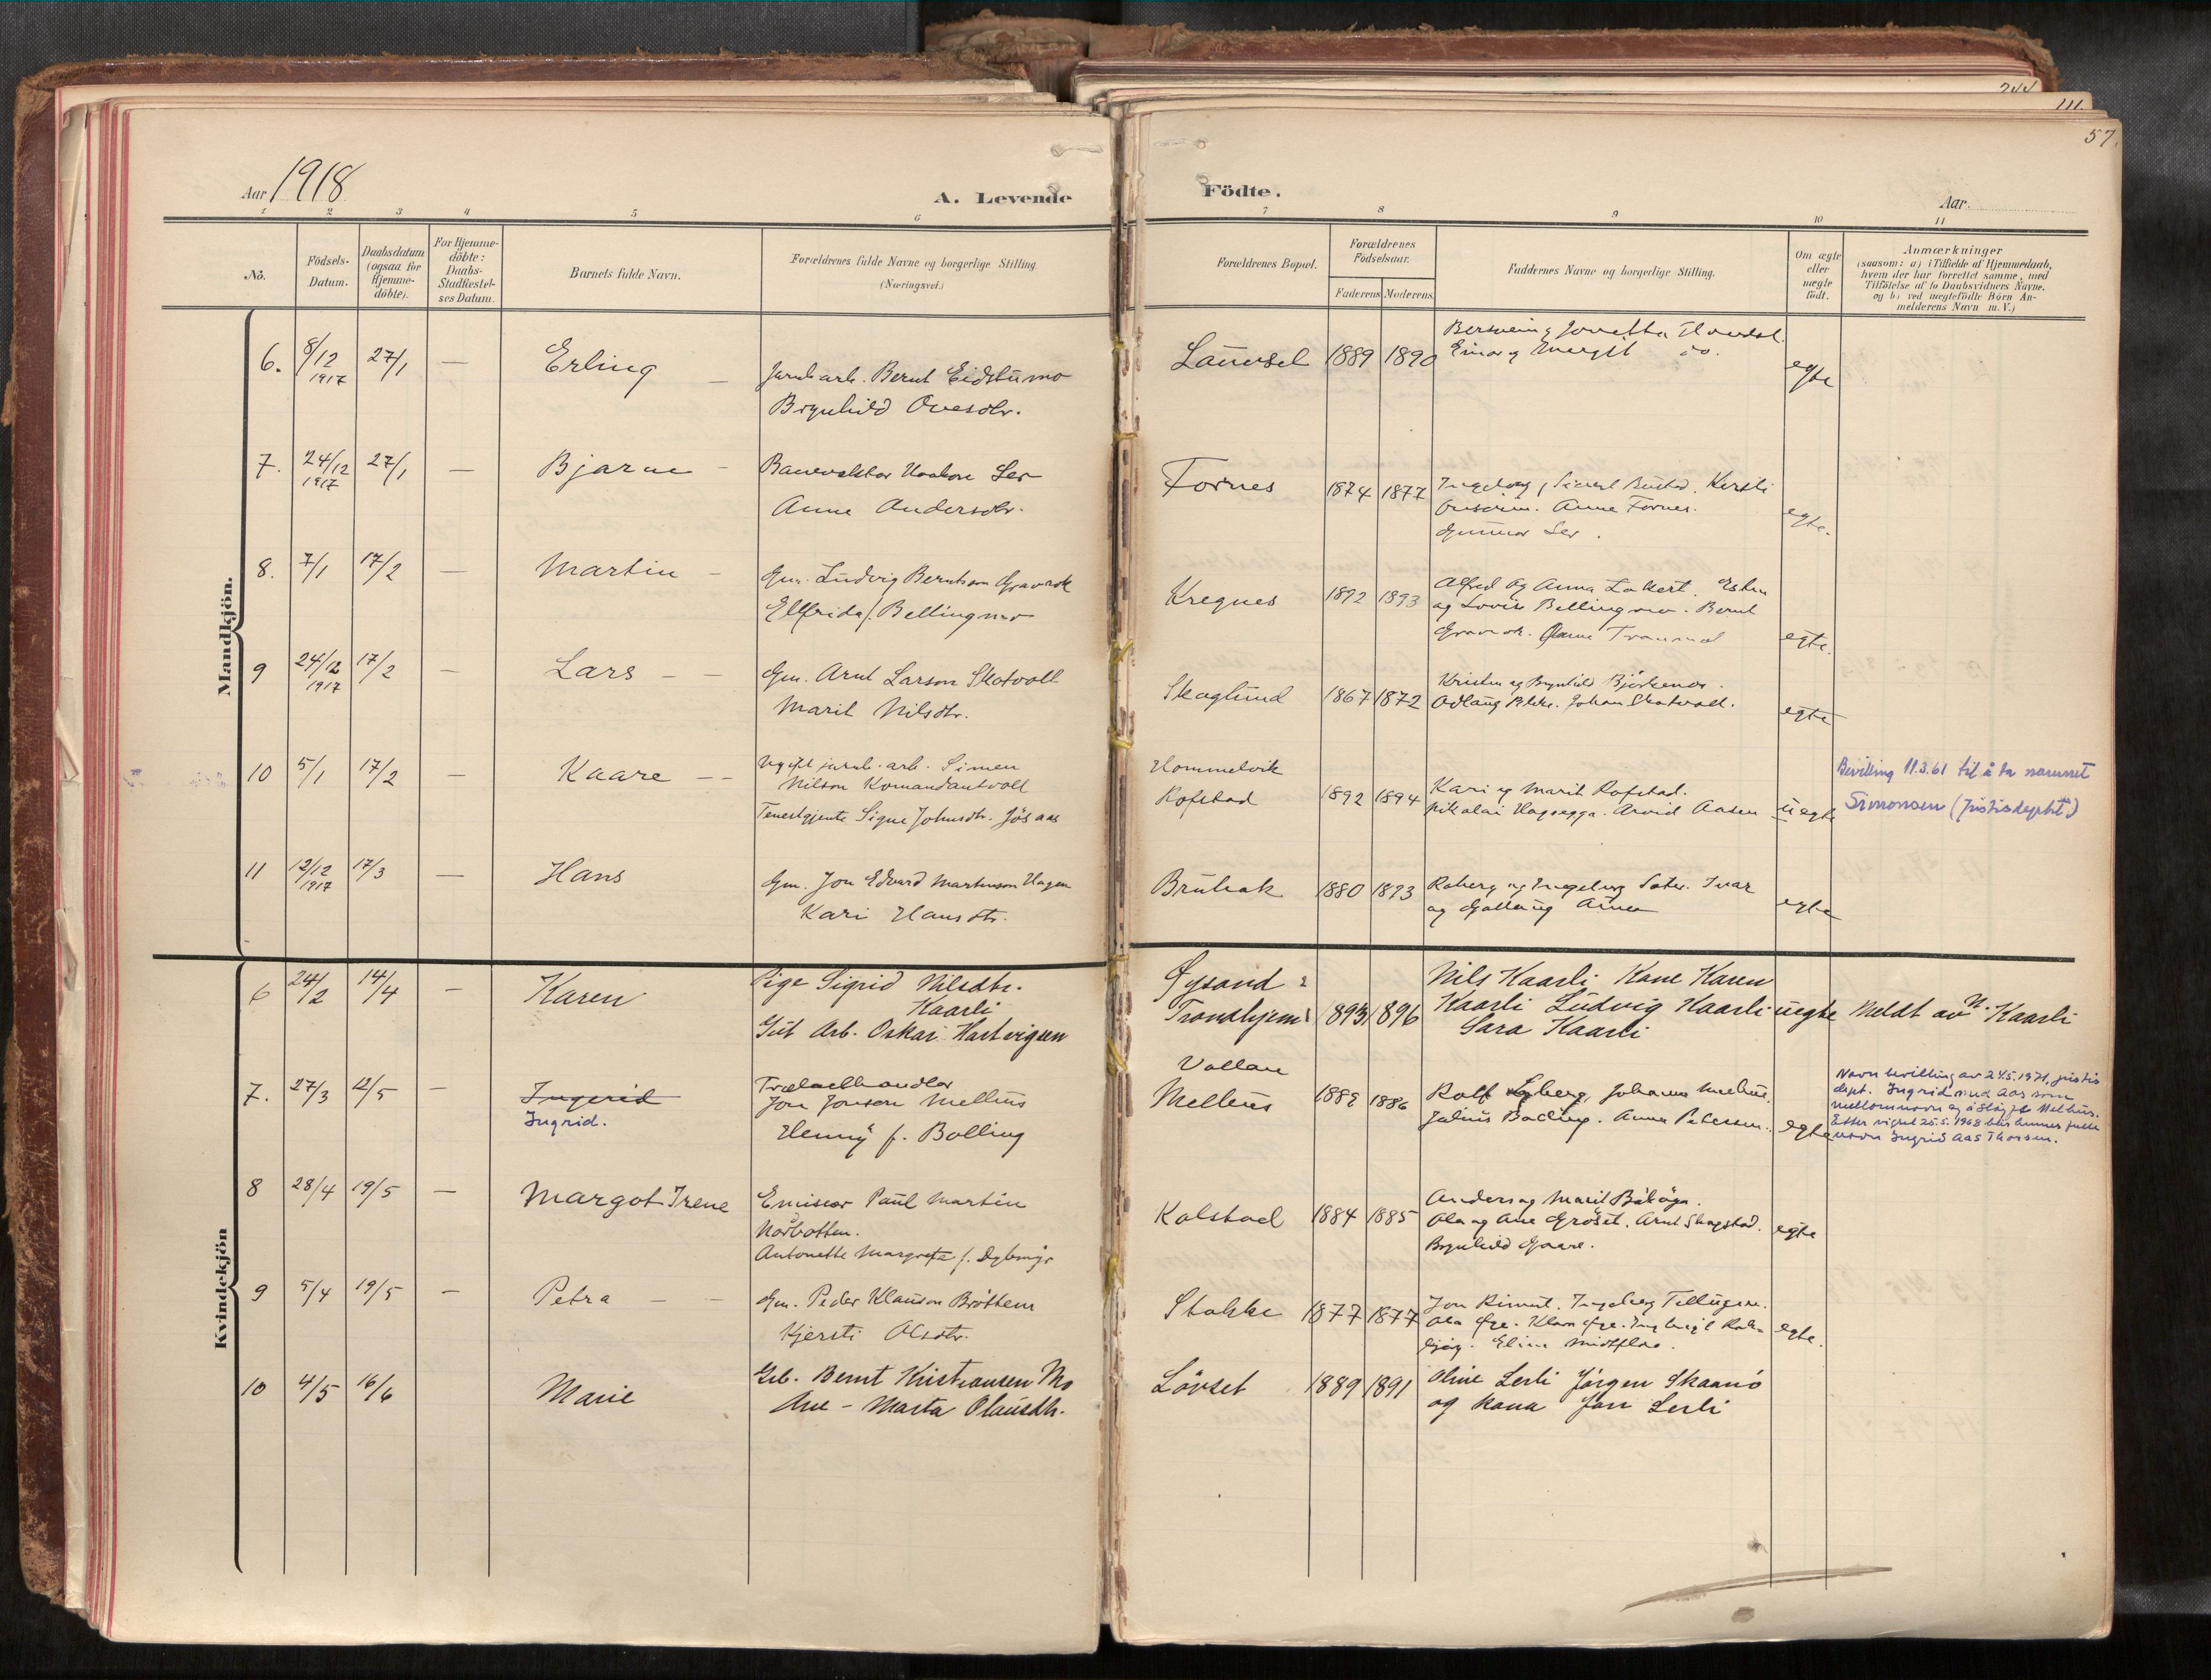 244
111.
57.
Aar 1918
A. Levende
Födte.
Aar.
1 2 3 4 5 6 7 8 9 10 11
No.
Födsels-
Datum.
Daabsdatum
(ogsaa for
Hjemme-
döbte).
For Hjemme-
döbte:
Daabs-
Stadfæstel-
ses Datum.
Barnets fulde Navn.
Forældrenes fulde Navne og borgerlige Stilling
(Næringsvei.)
Forældrenes Bopæl.
Forældrenes
Födselsaar.
Faderens Moderens
Faddernes Navne og borgerlige Stilling.
Om ægte
eller
uægte
födt.
Anmærkninger
(saasom: a) i Tilfælde af Hjemmedaab,
hvem der har forrettet samme, med
Tilföielse af to Daabsvidners Navne.
og b) ved uægtefödte Börn An-
melderens Navn m. V.)
Mandkjön.
6. 8/12 1917 27/1 — Erling —
Jarnb.arb. Bernt Eidstumo
Brynhild Ovesdtr.
1889 1890
Einar og Margit do.
egte
7. 24/12 1917 27/1 — Bjarne -
Banevokter Haakon Ler
Anne Andersdtr.
Fornes 1874 1877
Anne Fornes.
Gunnar Ler.
egte.
8. 7/1 17/2 — Martin -
Gm. Ludvig Berntson Gravrok
Elfrida f. Bellingmo
Kregnes 1892 1893
Alfred og Anna
og Lovise Bellingmo. Bernt
Gravrok.
egte.
9 24/12 1917 17/2 — Lars - -
Gm. Arnt Larson Skotvoll
Marit Nilsdtr.
Skoglund 1867 1872
Kristen og Brynhild
Johan Skotvoll.
egte
10 5/1 17/2 — Kaare - -
Ugift jarnb. arb. Simen
Nilson Komandantvoll
Tenestgjente Signe Johnsdtr. Jösaas
Hommelvik
Rofstad 1892 1894
Kari og Marit Rofstad.
Nikolai Hagegga. Arvid Aasen
uegte
Bevilling 11.3.61 til å ta navnet
Simonsen (Justisdeptet)
11 12/12 1917 17/3 — Hans
Gm. Jon Edvard Martinson Hagen
Kari Hansdtr.
Brubak 1880 1893
og Ingeborg Ivar
og
egte
Kvindekjön
6 24/2 14/4 — Karen
Pige Sigrid Nilsdtr.
Kaarli
Gut Arb. Oskar Hartvigsen
Öysand
Trondhjem 1893 1896
Nils Kaarli Kone Karen
Kaarli Ludvig Kaarli
Sara Kaarli
uegte
Meldt av N. Kaarli
7. 27/3 12/5 — Ingerid
Ingrid.
Trælasthandler
Jon Jonsen Melhus
Henny f. Bolling
Vollan
Melhus 1882 1886
Rolf Johanna Melhus.
Julius Bolling. Anna Petersen.
egte
Navnebevilling av 24.5.1971, justis
dept. Ingrid med Aas som
mellomnavn og å sløyfe Melhus.
Etter vigsel 25.5.1968 blir hennes fulle
navn Ingrid Aas Thorsen.
8 28/4 19/5 — Margot Irene
Emisær Paul Martin
Norbotten.
Antonette Margrete f. Dybmyr
Kolstad 1884 1885
Anders og Marit
Ola og Ane Gröset. Arnt Skogstad.
Brynhild Gaare.
egte
9 5/4 19/5 — Petra - -
Gm. Peder Klauson Bröttem
Kjersti Olsdtr.
Stokke 1877 1877
Jon Rimul. Ingeborg
Ola Klara
Eline
egte.
10 4/5 16/6 Marie
Grb. Bernt Kristiansen Mo
Ane-Marta Olausdtr.
Lövset 1889 1891
Oline Lerli Jörgen Skaanö
og kona Jon Lerli